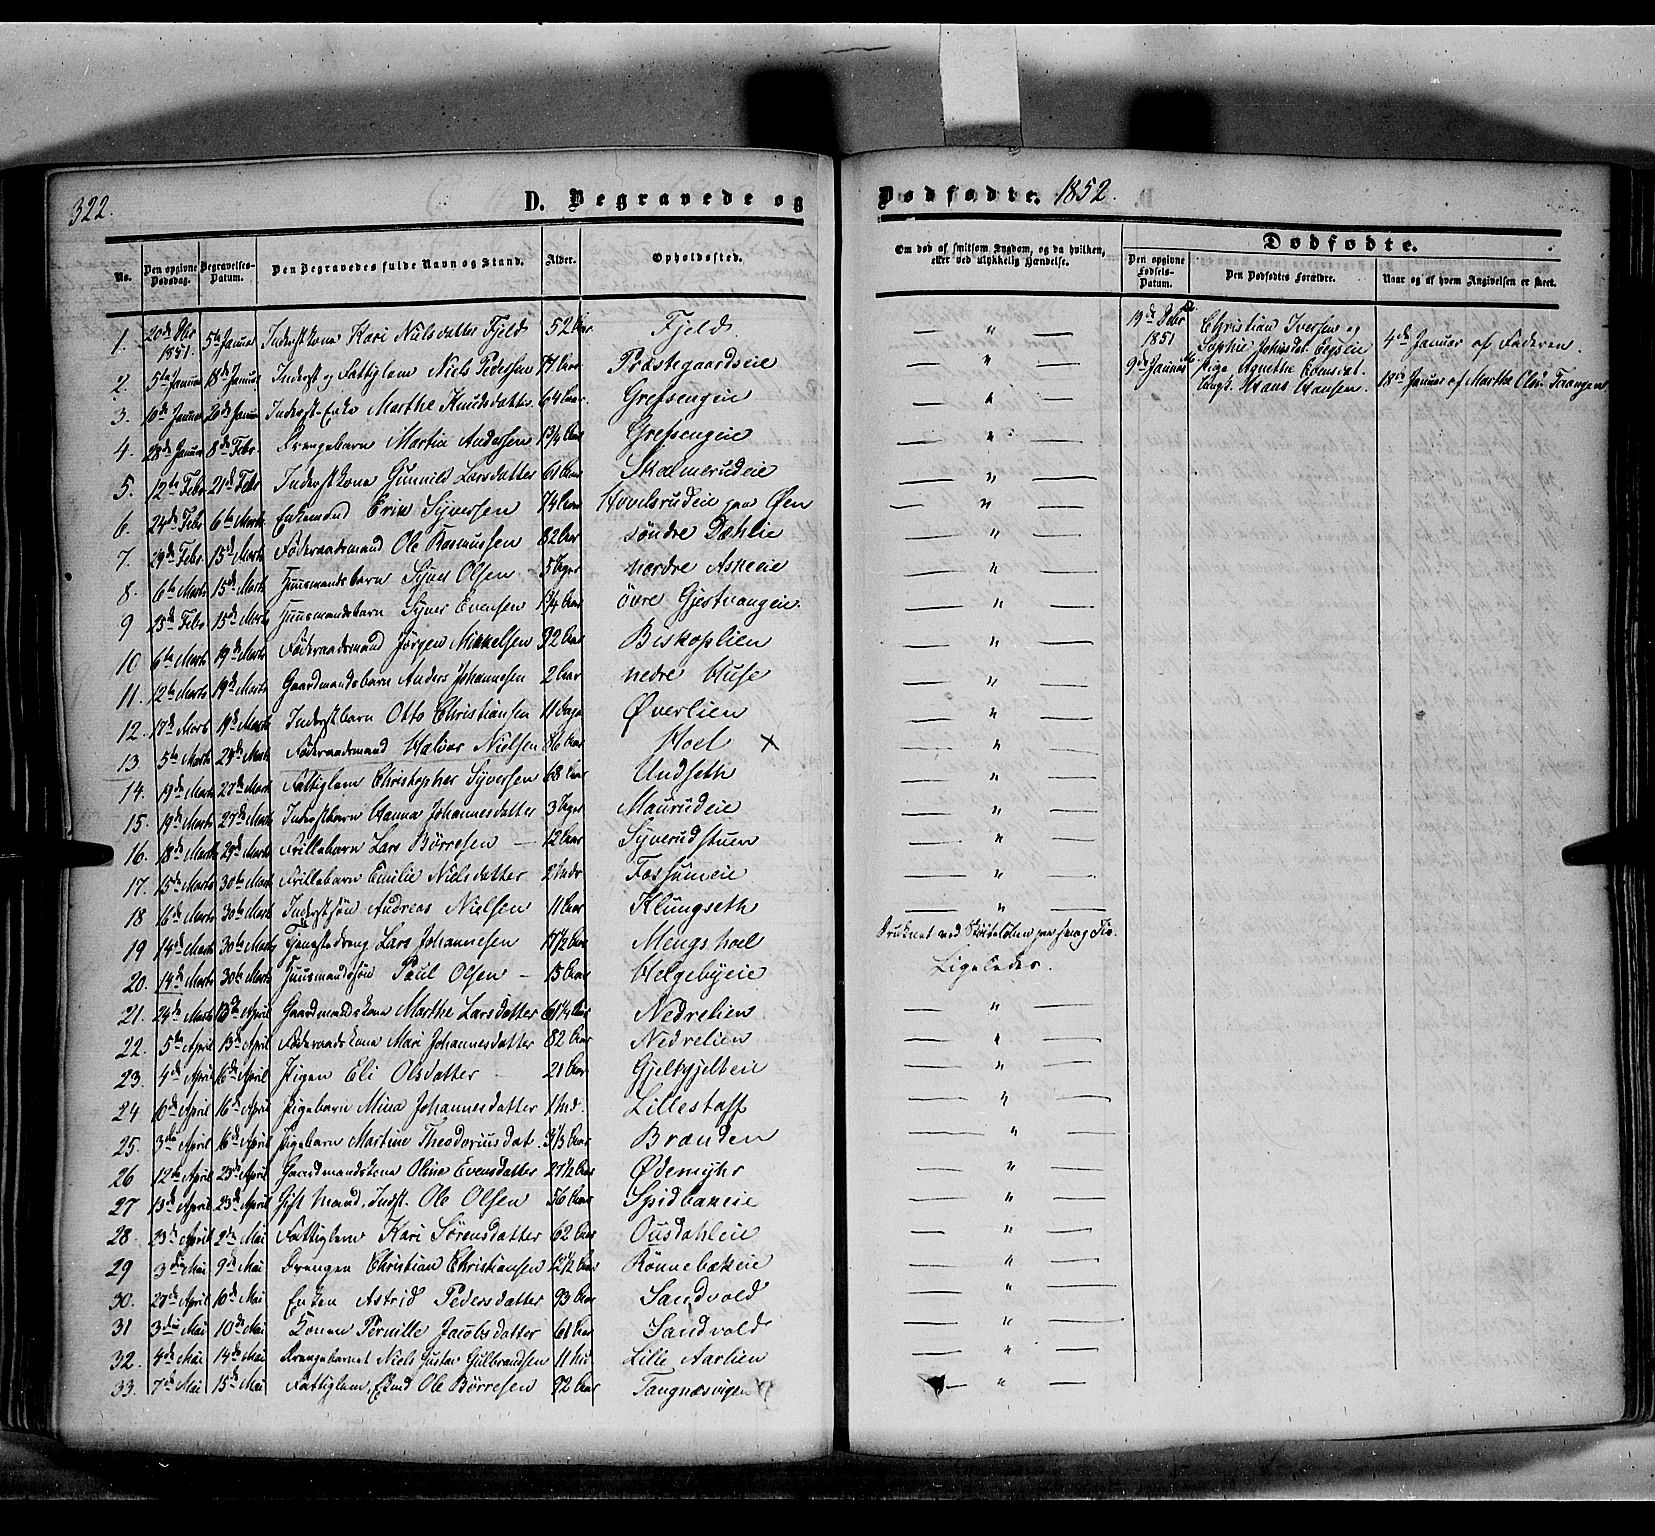 322.
D. Begravede og
Dødfødte. 1852.
No.
Den opgivne Dødsdag.
Begravelses-Datum.
Den Begravedes fulde Navn og Stand.
Alder.
Opholdssted.
Om død af smitsom Sygdom, og da hvilken, eller ved ulykkelig Hændelse.
Dødfødte.
Den opgivne Fødsels-Datum.
Den Dødfødtes Forældre.
Naar og af hvem Angivelsen er skeet.
1. 20de Dbr 1851. 5te Januar Inderstkone Kari Nielsdatter Fjeld 52 Aar Fjeld — " —
2. 5te Januar 18de Januar Inderst og Fattiglem Niels Pedersen 77 Aar Præstegaardseie — " —
3. 10de Januar 20de Januar Inderst-Enke Marthe Knudsdatter 64 Aar Grefsengein — " —
4. 28de Januar 8de Febr Drengebarn Martin Andersen 1 3/4 Aar Grefsengeie — " —
5. 12te Febr 21de Febr Inderstkone Gunnild Larsdatter 61 Aar Skolmerudeie — " —
6. 24de Febr 6te Marts Enkemand Erik Syversen 74 Aar Hovelsrudeie paa Øen — " —
7. 29de Febr 15de Marts Føderaadsmand Ole Rasmussen 82 Aar söndre Dæhlie — " —
8. 6te Marts 15de Marts Huusmandsbarn Syver Olsen 5 Uger nordre Askeeie — " —
9 25de Febr 15de Marts Huusmandsbarn Syver Evensen 1 1/4 Aar övre Gjestvangeie — " —
10. 6te Marts 19de Marts Føderaadsmand Jörgen Mikkelsen 92 Aar Biskoplien — " —
11. 12te Marts 19de Marts Gaardmandsbarn Anders Johannesen 2 Aar nedre Huse — " —
12. 17de Marts 19de Marts Inderstbarn Otto Christiansen 11 Dage Øverlien — " —
13. 5te Marts 29de Marts Føderaadsmand Halvor Nielsen 86 Aar Hoel × — " —
14. 19de Marts 27de Marts Fattiglem Christopher Syversen 68 Aar Undseth — " —
15. 19de Marts 27de Marts Inderstbarn Hanna Johannesdatter 3 Uger Maurudeie — " —
16. 18de Marts 29de Marts Frillebarn Lars Börresen — 12 Aar Syverudstuen — " —
17. 15de Marts 30te Marts Frillebarn Emilie Nielsdatter 2 Mdr Fossumeie — " —
18 16de Marts 30te Marts Inderstsön Andreas Nielsen 11 Aar Klungseth — " —
19 14de Marts 30te Marts Tjenestedreng Lars Johannesen 17 1/2 Aar Mengshoel Druknet ved
20. 14de Marts 30te Marts Huusmandssön Paul Olsen — 15 Aar Helgebyeie Ligeledes.
21. 24de Marts 13de April Gaardmandskone Marthe Larsdatter 61 1/4 Aar Nedrelien — " —
22. 5te April 13de April Føderaadskone Mari Johannesdatter 82 Aar Nedrelien — " —
23. 4de April 16de April Pigen Eli Olsdatter — 21 Aar — " —
24 10de April 16de April Pigebarn Mina Johannesdatter 1 Md. Lillestaff — " —
25. 3die April 16de April Pigebarn Martine Theodoriusdat. 3 1/3 Aar Brænden — " —
26 12te April 23de April Gaardmandskone Oline Evensdatter 27 1/2 Aar Ødemyhr — " —
27 13de April 23de April Gift Mand, Indst. Ole Olsen 56 Aar Spidbakeie — " —
28. 23de April 2den Mai Fattiglem Kari Sörensdatter 62 Aar Ousdahleie — " —
29 3die Mai 9de Mai Drengen Christian Christiansen 12 1/2 Aar Rönnebækeie — " —
30. 29de April 10de Mai Enken Astrid Pedersdatter 93 Aar Sandvold — " —
31 3die Mai 10de Mai Konen Pernille Jacobsdatter 61 Aar Sandvold — " —
32. 4de Mai 14de Mai Drengebarnet Niels Gustav Gulbrandsen 11 Md. Lille Aarlien — " —
33. 7de Mai 15de Mai Fattiglem, Ekmd Ole Börresen 92 Aar Tangnæsvigen — " —
19de Debr 1851 Christian Iversen og Sophie Johnsdat. 4de Januar af Faderen.
9de Januar Pige Agnethe Evensdat. Ungk. Hans Hansen. 18de Januar af Marthe Olsd. Taangen